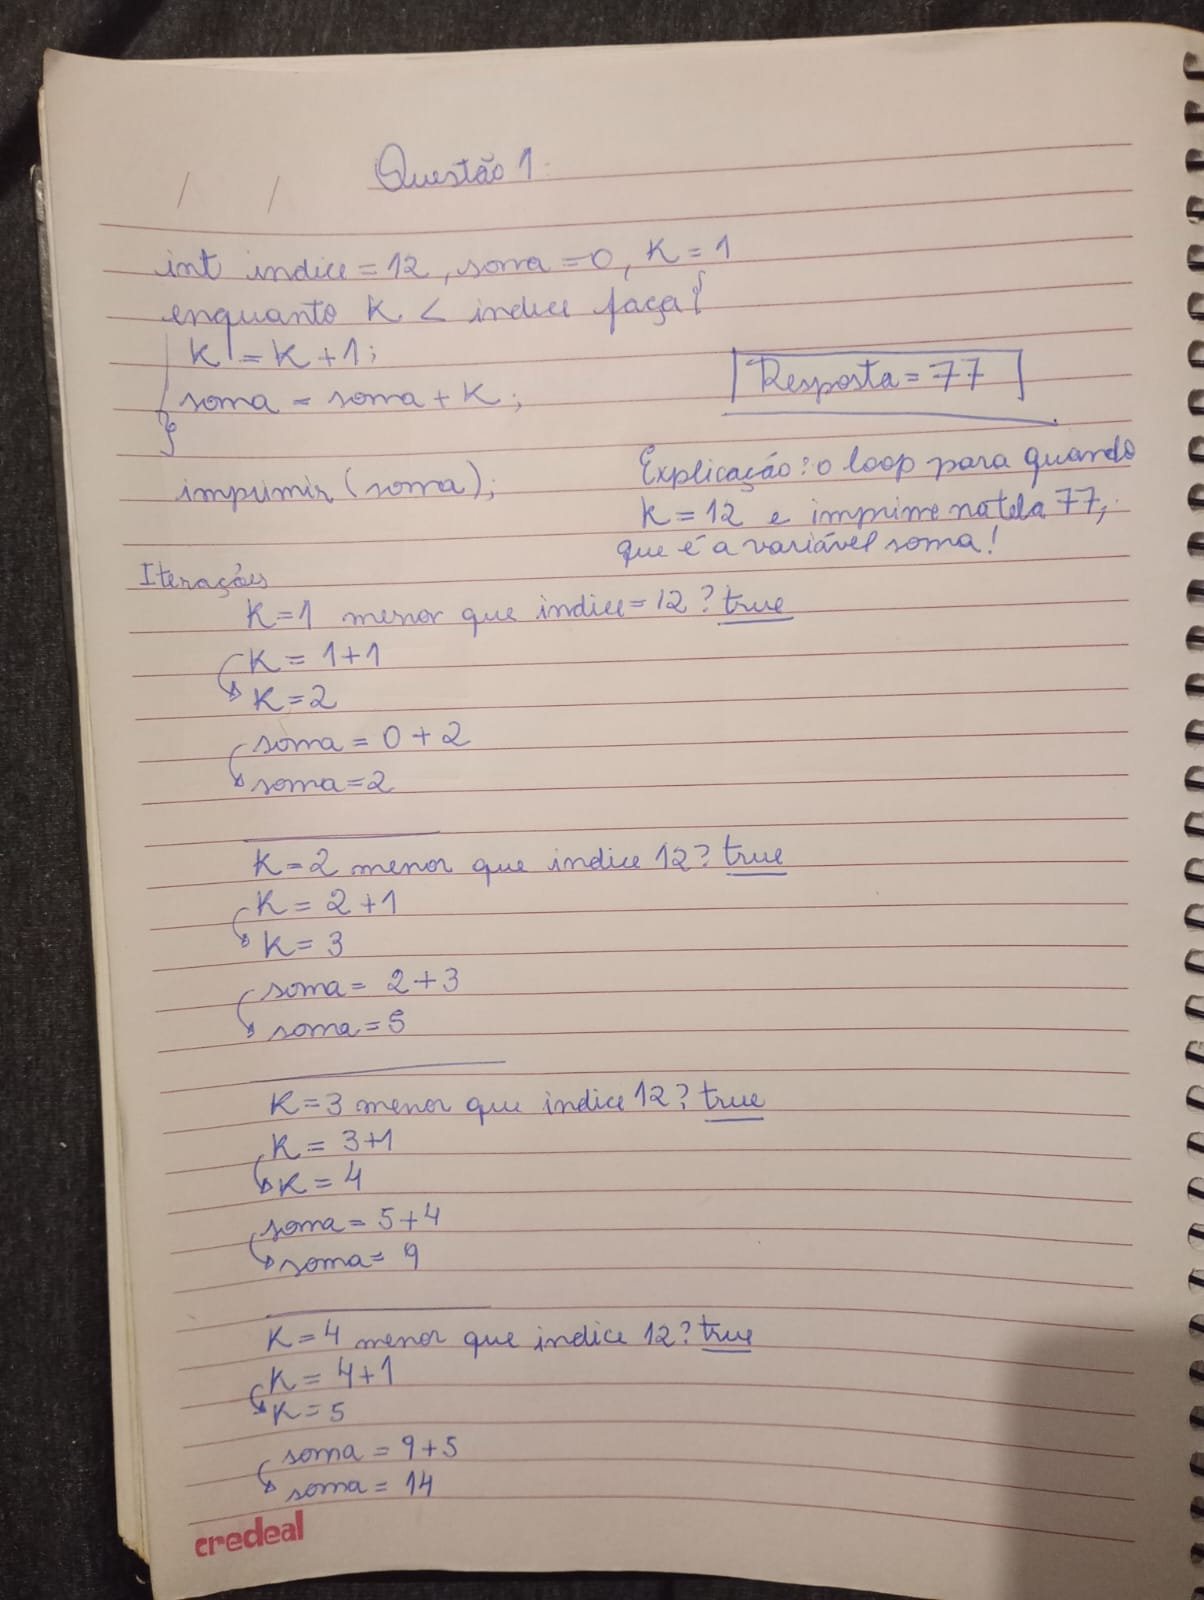 / / Questão 1.
int indice = 12, soma = 0, K = 1
enquanto K < indice faça{
K = K + 1;
soma = soma + K;
}
imprimir (soma);
Resposta = 77
Explicação: o loop para quando
K = 12 e imprime na tela 77,
que é a variável soma!
Iterações
K = 1 menor que indice = 12? true
K = 1 + 1
K = 2
soma = 0 + 2
soma = 2
K = 2 menor que indice 12? true
K = 2 + 1
K = 3
soma = 2 + 3
soma = 5
K = 3 menor que indice 12? true
K = 3 + 1
K = 4
soma = 5 + 4
soma = 9
K = 4 menor que indice 12? true
K = 4 + 1
K = 5
soma = 9 + 5
soma = 14
credeal